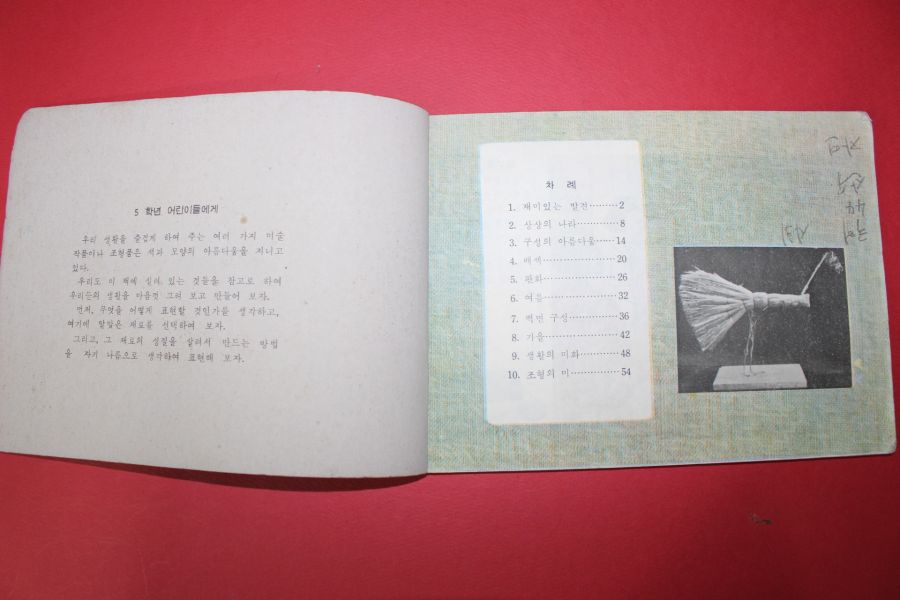 5 학년 어린이들에게
우리 생활을 즐겁게 하여 주는 여러 가지 미술
작품이나 조형품은 색과 모양의 아름다움을 지니고
있다.
우리도 이 책에 실려 있는 것들을 참고로 하여
우리들의 생활을 마음껏 그려 보고 만들어 보자.
먼저, 무엇을 어떻게 표현할 것인가를 생각하고,
여기에 알맞은 재료를 선택하여 보자.
그리고, 그 재료의 성질을 살려서 만드는 방법
을 자기 나름으로 생각하여 표현해 보자.
차 례
1. 재미있는 발견………2
2. 상상의 나라…………8
3. 구성의 아름다움……14
4. 배색…………………20
5. 판화…………………26
6. 여름…………………32
7. 벽면 구성……………36
8. 겨울…………………42
9. 생활의 미화…………48
10. 조형의 미……………54